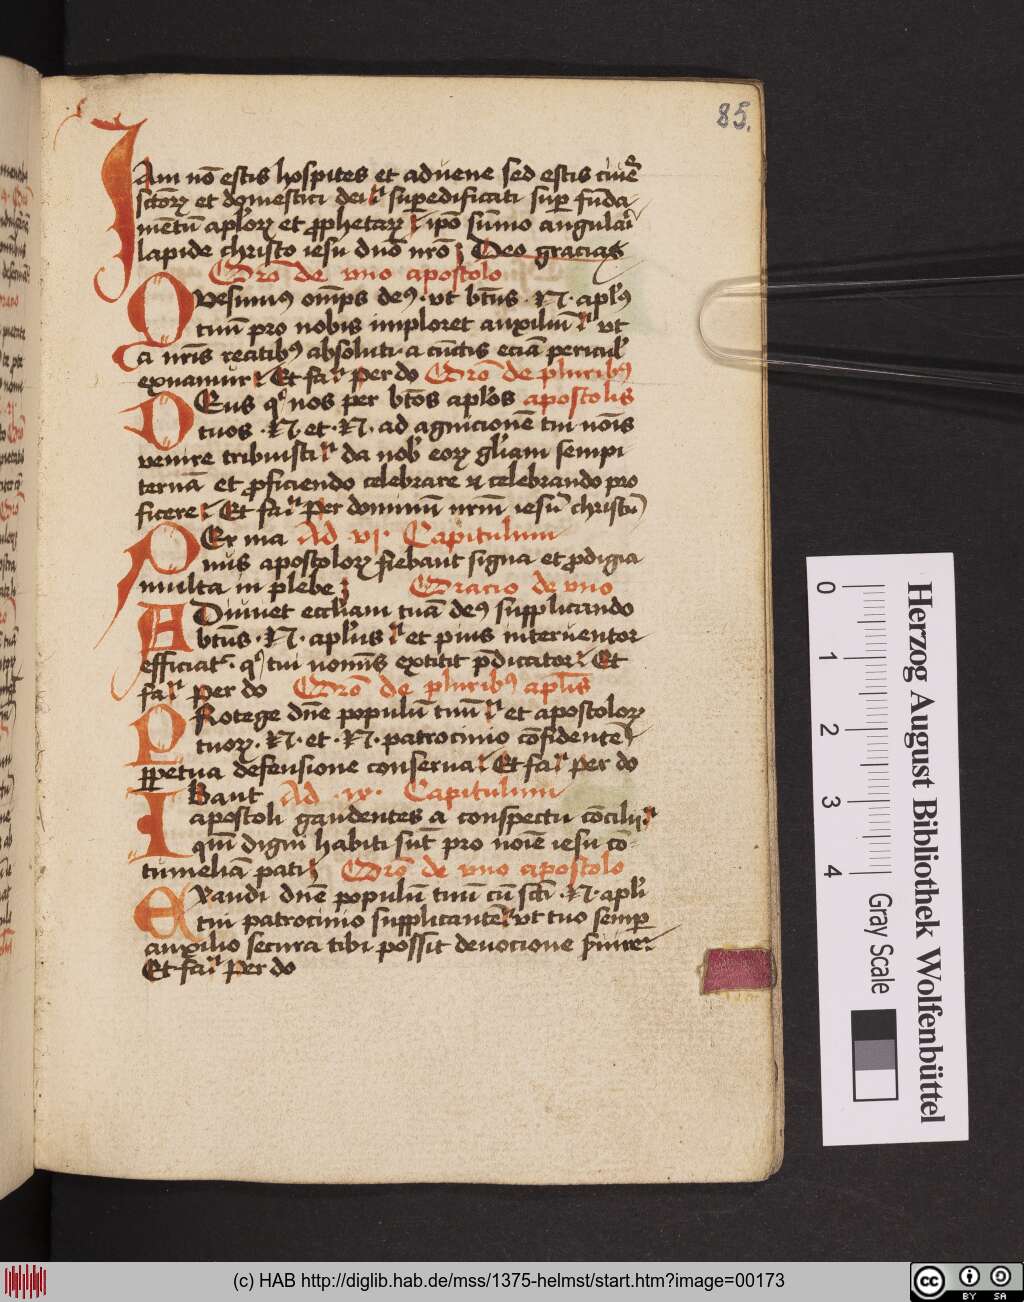 85.
IAm nō estis hospites et aduene sed estis ciues
sctōrꝝ et domestici dei superedificati super funda
mentū aplōrꝝ et ꝓphetarꝝ ipō sūmo angulari
lapide christo iesu dnō nrō Deo gracias
Orō de vno apostolo
QVesumꝰ omps deꝰ · vt btūs · N · aplꝰs
tuus pro nobis imploret auxiliū vt
a nrīs reatibꝰ absoluti · a cūctis eciā periculis
exuamur Et fa per do Orō de pluribꝰ
DEus qͥ nos per btōs aplōs apostolis
tuos · N · et · N · ad agnicionē tui nōis
venire tribuisti da nob eorꝝ glīam sempi
ternā et ꝓficiendo celebrare et celebrando pro
ficere Et fa per dominū nrm iesū christū
PEr ma Ad vj · Capitulum
nus apostolorꝝ fiebant signa et ꝓdigia
multa in plebe Oracio de vno
ADiuuet eccliam tuā deꝰ supplicando
btūs · N · aplus et pius interuentor
efficiat · qͥ tui nomīs extitit p̄dicator Et
fa per do Orō de pluribꝰ aplis
PRotege dnē populū tuū et apostolorꝝ
tuorꝝ · N · et · N · patrocinio cōfidentē
ꝑpetua defensione conserua Et fa per do
IBant Ad · ix · Capitulum
apostoli gaudentes a conspectu cōcilij
qm̄ digni habiti sūt pro noīe iesu cō
tumeliā pati Orō de vno apostolo
EXaudi dnē populū tuū cū sctī · N · apli
tui patrocinio supplicantē vt tuo semper
auxilio secura tibi possit deuocione seruire
Et fa per do
Herzog August Bibliothek Wolfenbüttel
0 1 2 3 4
Gray Scale
(c) HAB http://diglib.hab.de/mss/1375-helmst/start.htm?image=00173
cc BY SA